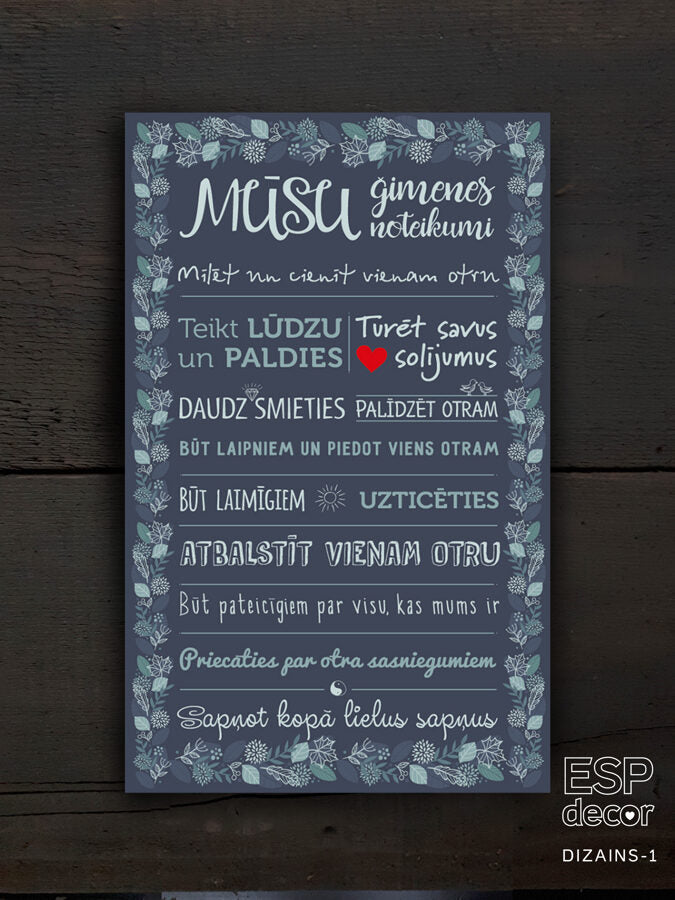 MŪSU ģimenes
noteikumi
Mīlēt un cienīt vienam otru
Teikt LŪDZU
un PALDIES
Turēt savus
solījumus
DAUDZ SMIETIES
PALĪDZĒT OTRAM
BŪT LAIPNIEM UN PIEDOT VIENS OTRAM
BŪT LAIMĪGIEM
UZTICĒTIES
ATBALSTĪT VIENAM OTRU
Būt pateicīgiem par visu, kas mums ir
Priecāties par otra sasniegumiem
Sapņot kopā lielus sapņus
ESP
decor
DIZAINS-1